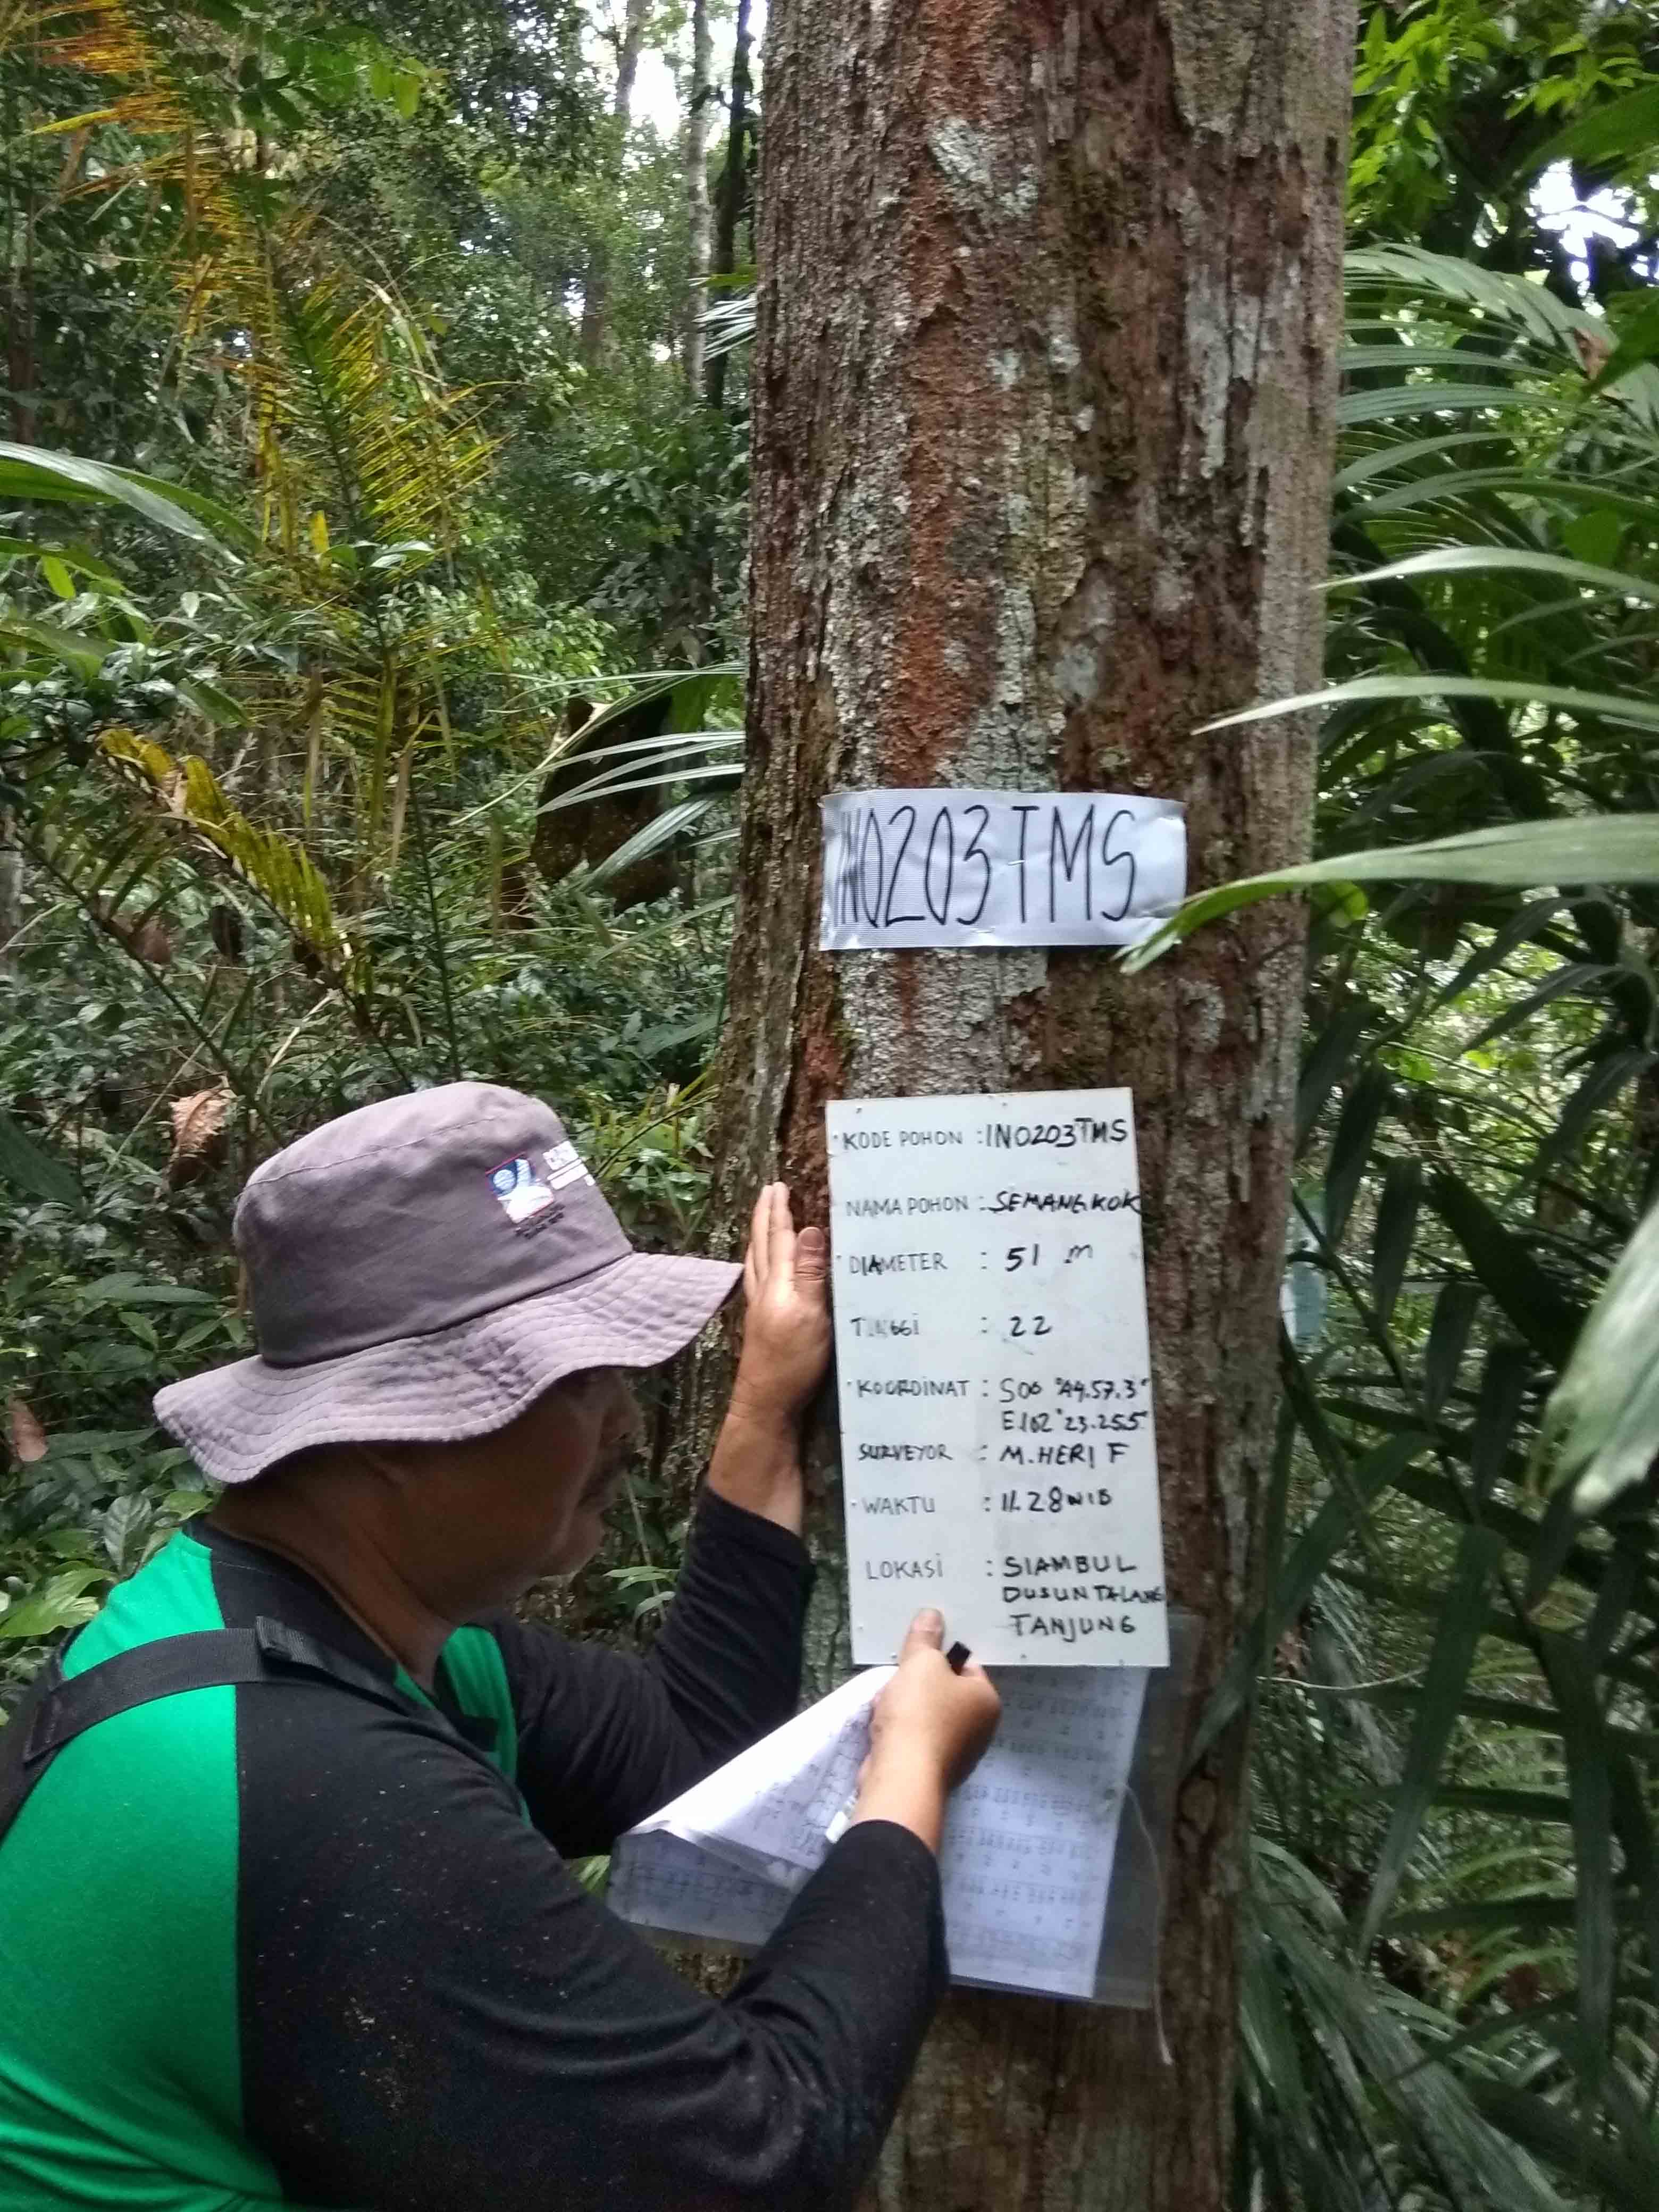 INO203TMS
KODE POHON : INO203TMS
NAMA POHON : SEMANGKOK
DIAMETER : 51 m
TINGGI : 22
KOORDINAT : S00°44.57.3"
E102°23.255"
SURVEYOR : M.HERI F
WAKTU : 11.28 WIB
LOKASI : SIAMBUL
DUSUN TALANG
TANJUNG